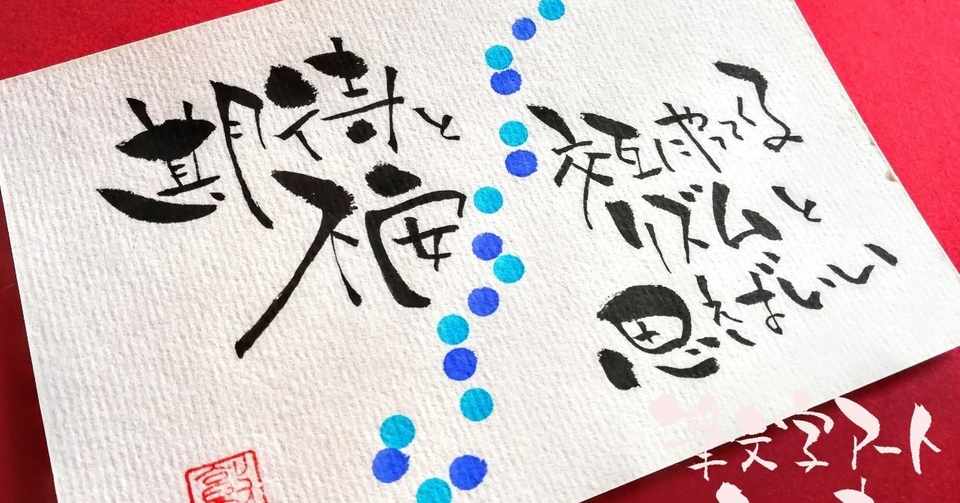 期待と
不安
交互にやってくる
リズムと
思えばいい
筆文字アート